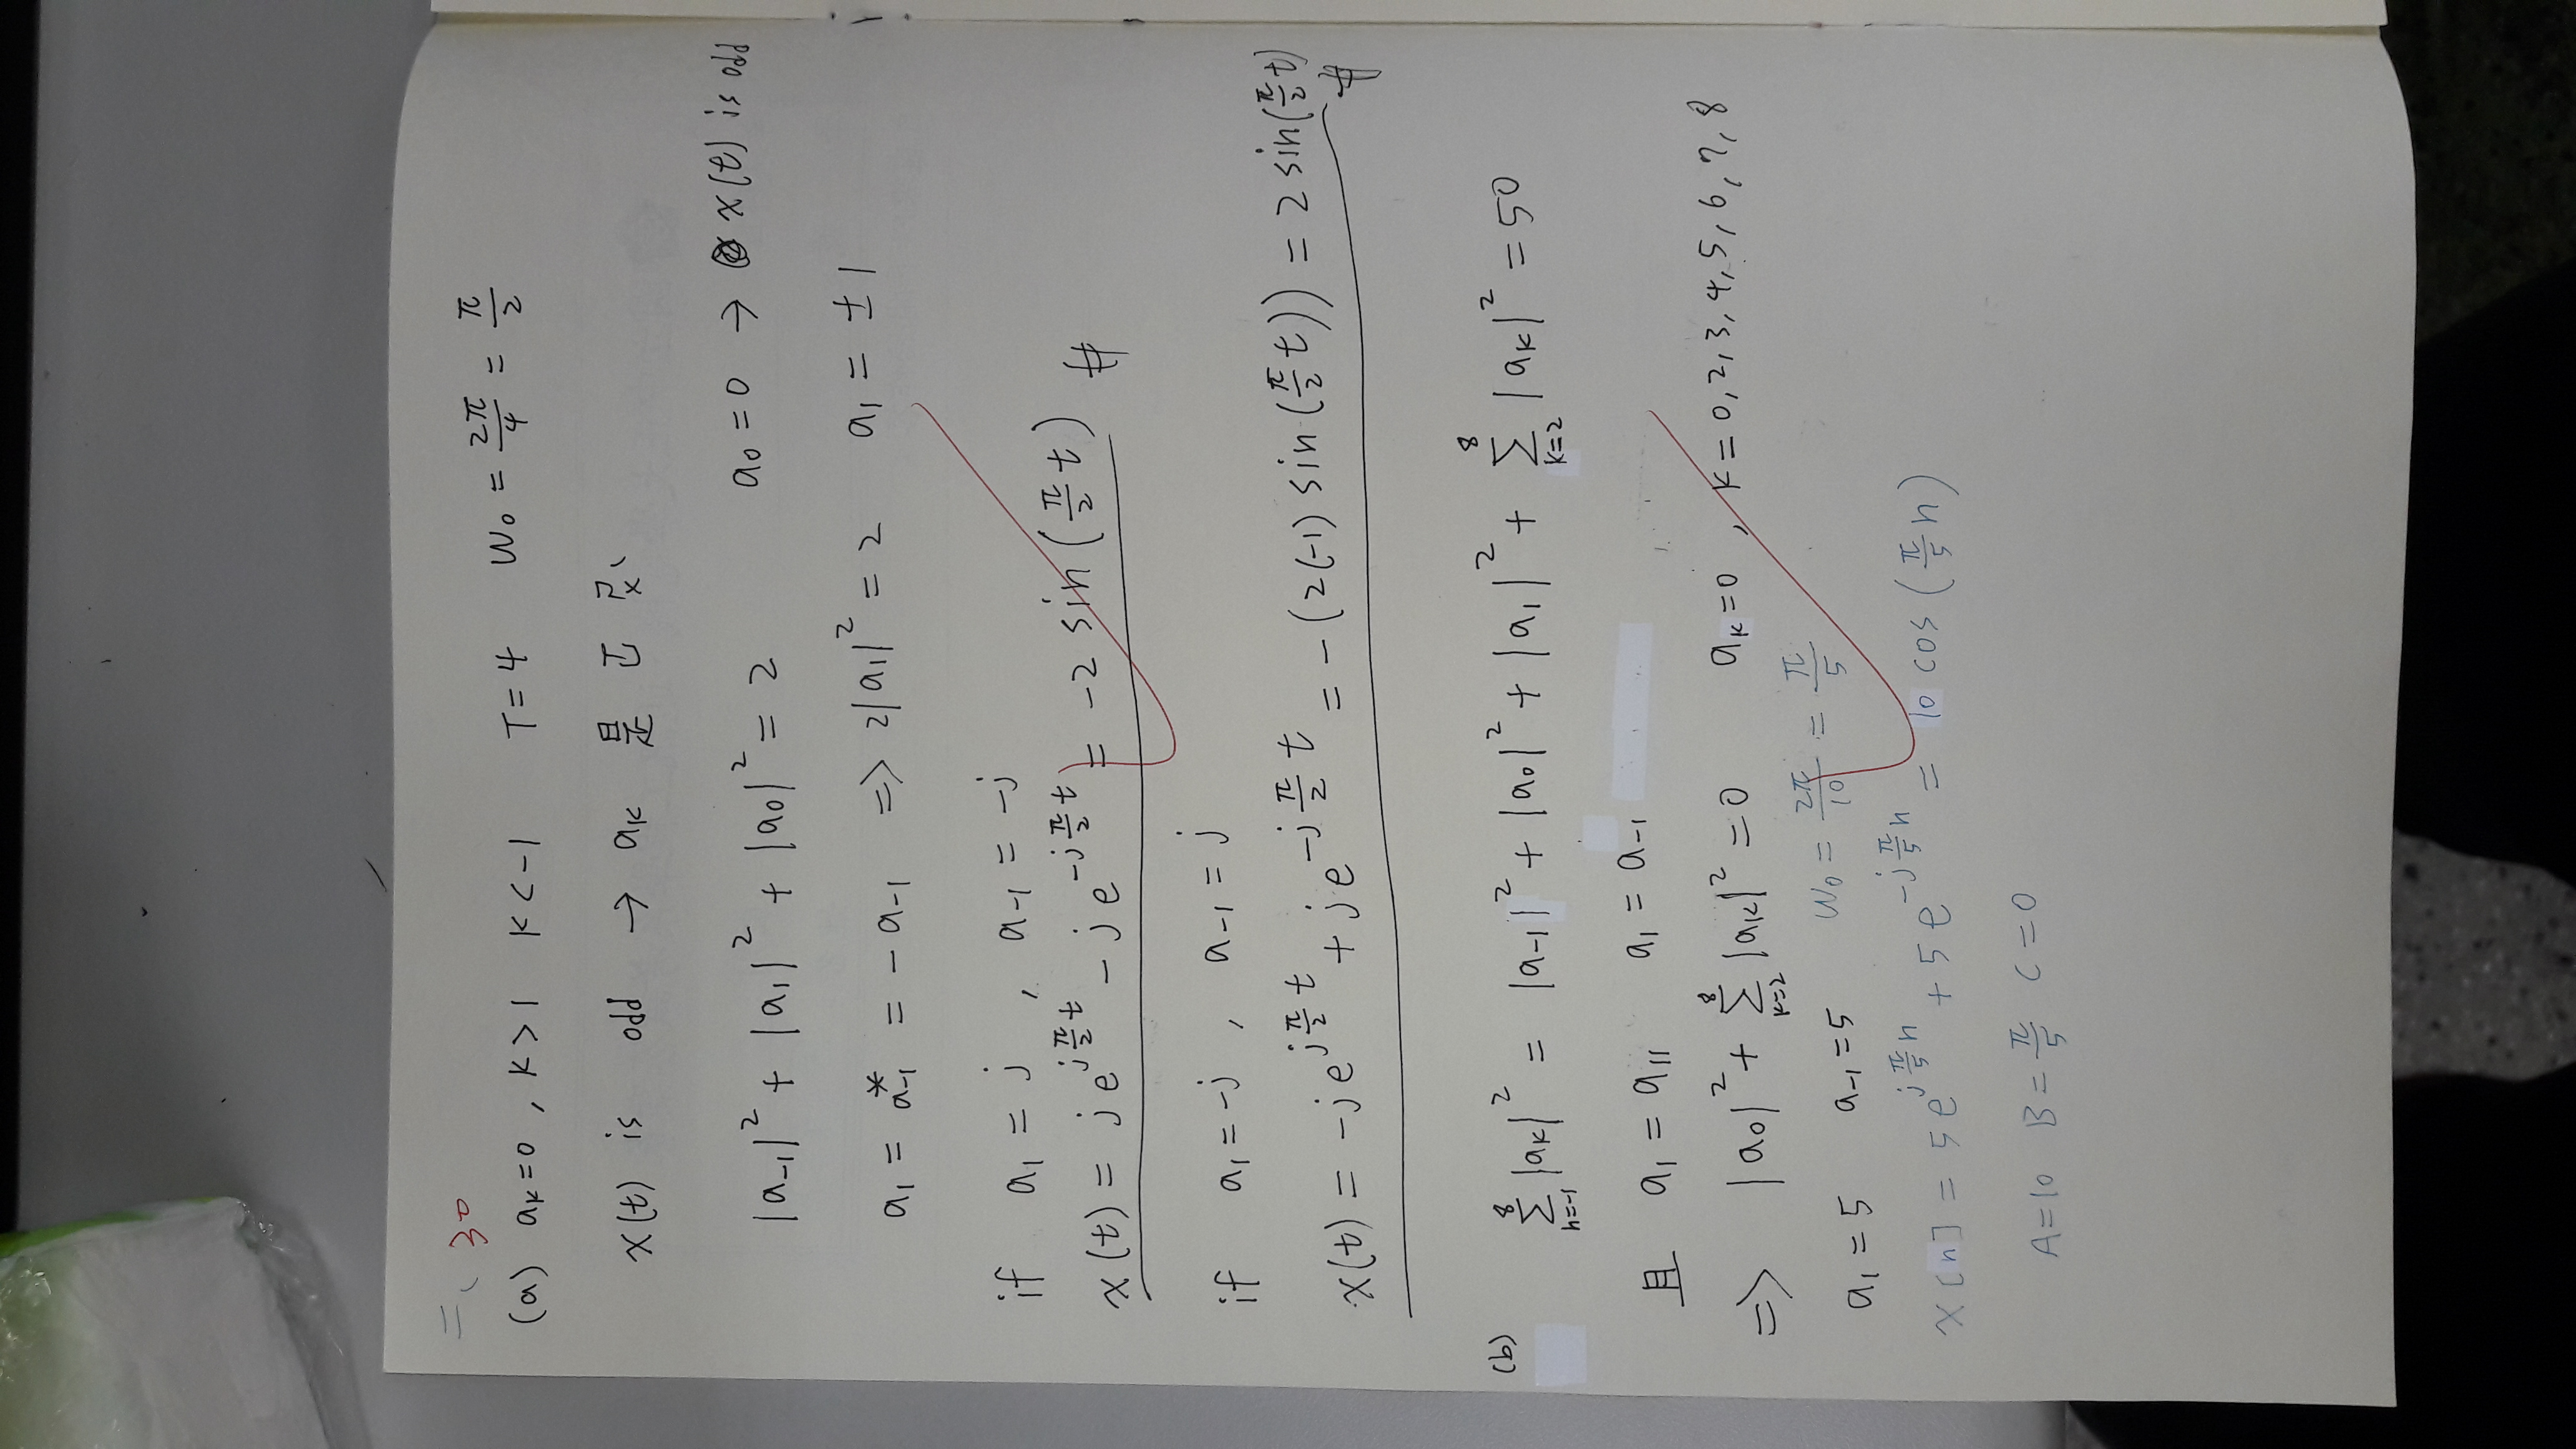 二、30
(a) aₖ=0 , k>1 k<-1 T=4 ω₀ = 2π/4 = π/2
x(t) is odd → aₖ 是
|a₋₁|² + |a₁|² + |a₀|² = 2 a₀=0 → x(t) is odd
a₁ = a₋₁* = -a₋₁ => 2|a₁|² = 2 a₁ = ±1
if a₁ = j , a₋₁ = -j
x(t) = je^(j π/2 t) - je^(-j π/2 t) = -2 sin(π/2 t) #
if a₁ = -j , a₋₁ = j
x(t) = -je^(j π/2 t) + je^(-j π/2 t) = -(2(-1) sin(π/2 t)) = 2 sin(π/2 t) #
(b) Σ_{n=-1}^{8} |aₖ|² = |a₋₁|² + |a₀|² + |a₁|² + Σ_{k=2}^{8} |aₖ|² = 50
且 a₁ = a₁₁ a₁ = a₋₁
=> |a₀|² + Σ_{k=2}^{8} |aₖ|² = 0 aₖ=0 , k=0,2,3,4,5,6,7,8
a₁ = 5 a₋₁ = 5 ω₀ = 2π/10 = π/5
x[n] = 5e^(j π/5 n) + 5e^(-j π/5 n) = 10 cos(π/5 n)
A=10 B=π/5 C=0